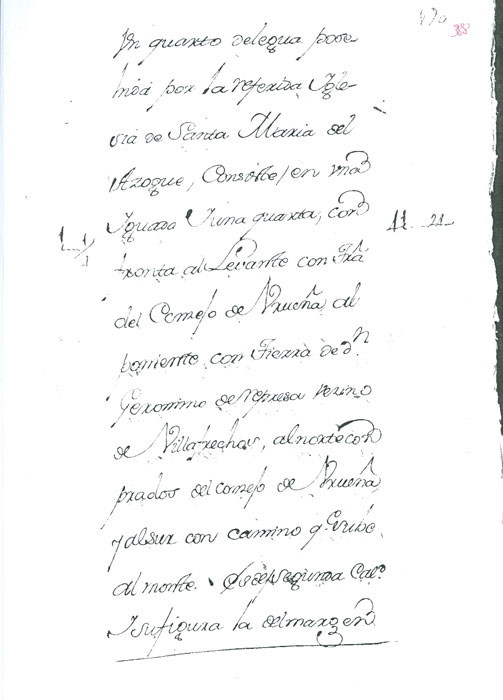 170
38
Un quarto de legua pose
hida por la referida Igle-
sia de Santa Maria del
Azogue, Consiste, en una
Iguada Iuna quarta, con
11..21..
1..1/1
fronta al Levante con Trã
del Consejo de Urueña, al
poniente con Tierra de dn.
Geronimo de represa vezino
de Villafrechos, al norte con
prados del consejo de Urueña,
y al sur con camino q. sube
al monte. Es de segunda Calo.
Isufigura la del margen